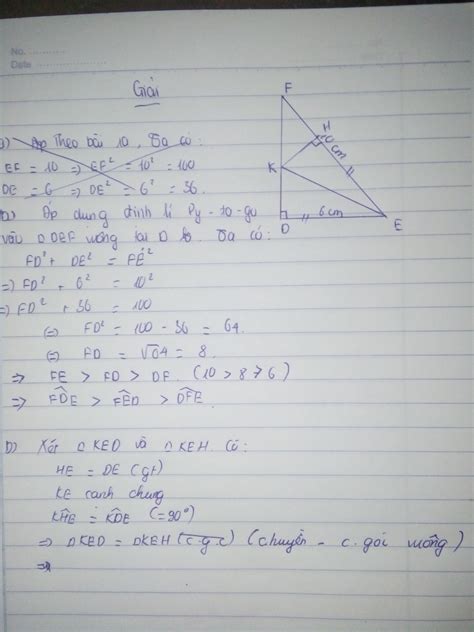 No.
Date
Giải
a) Áp Theo bài ra, Ta có:
EF = 10 => EF² = 10² = 100
DE = 6 => DE² = 6² = 36.
a) Áp dụng định lí Py-ta-go
vào Δ DEF vuông tại D ta có:
FD² + DE² = FE²
=> FD² + 6² = 10²
=> FD² + 36 = 100
(=) FD² = 100 - 36 = 64.
(=) FD = √64 = 8.
=> FE > FD > DE. (10 > 8 > 6)
=> FDE > FED > DFE.
b) Xét Δ KED và Δ KEH. Có:
HE = DE (gt)
KE cạnh chung
KHE = KDE (=90°)
=> ΔKED = ΔKEH (c.g.c) (chuyền - c. gói vuông)
=>
F
H
10 cm
K
6cm
D
E